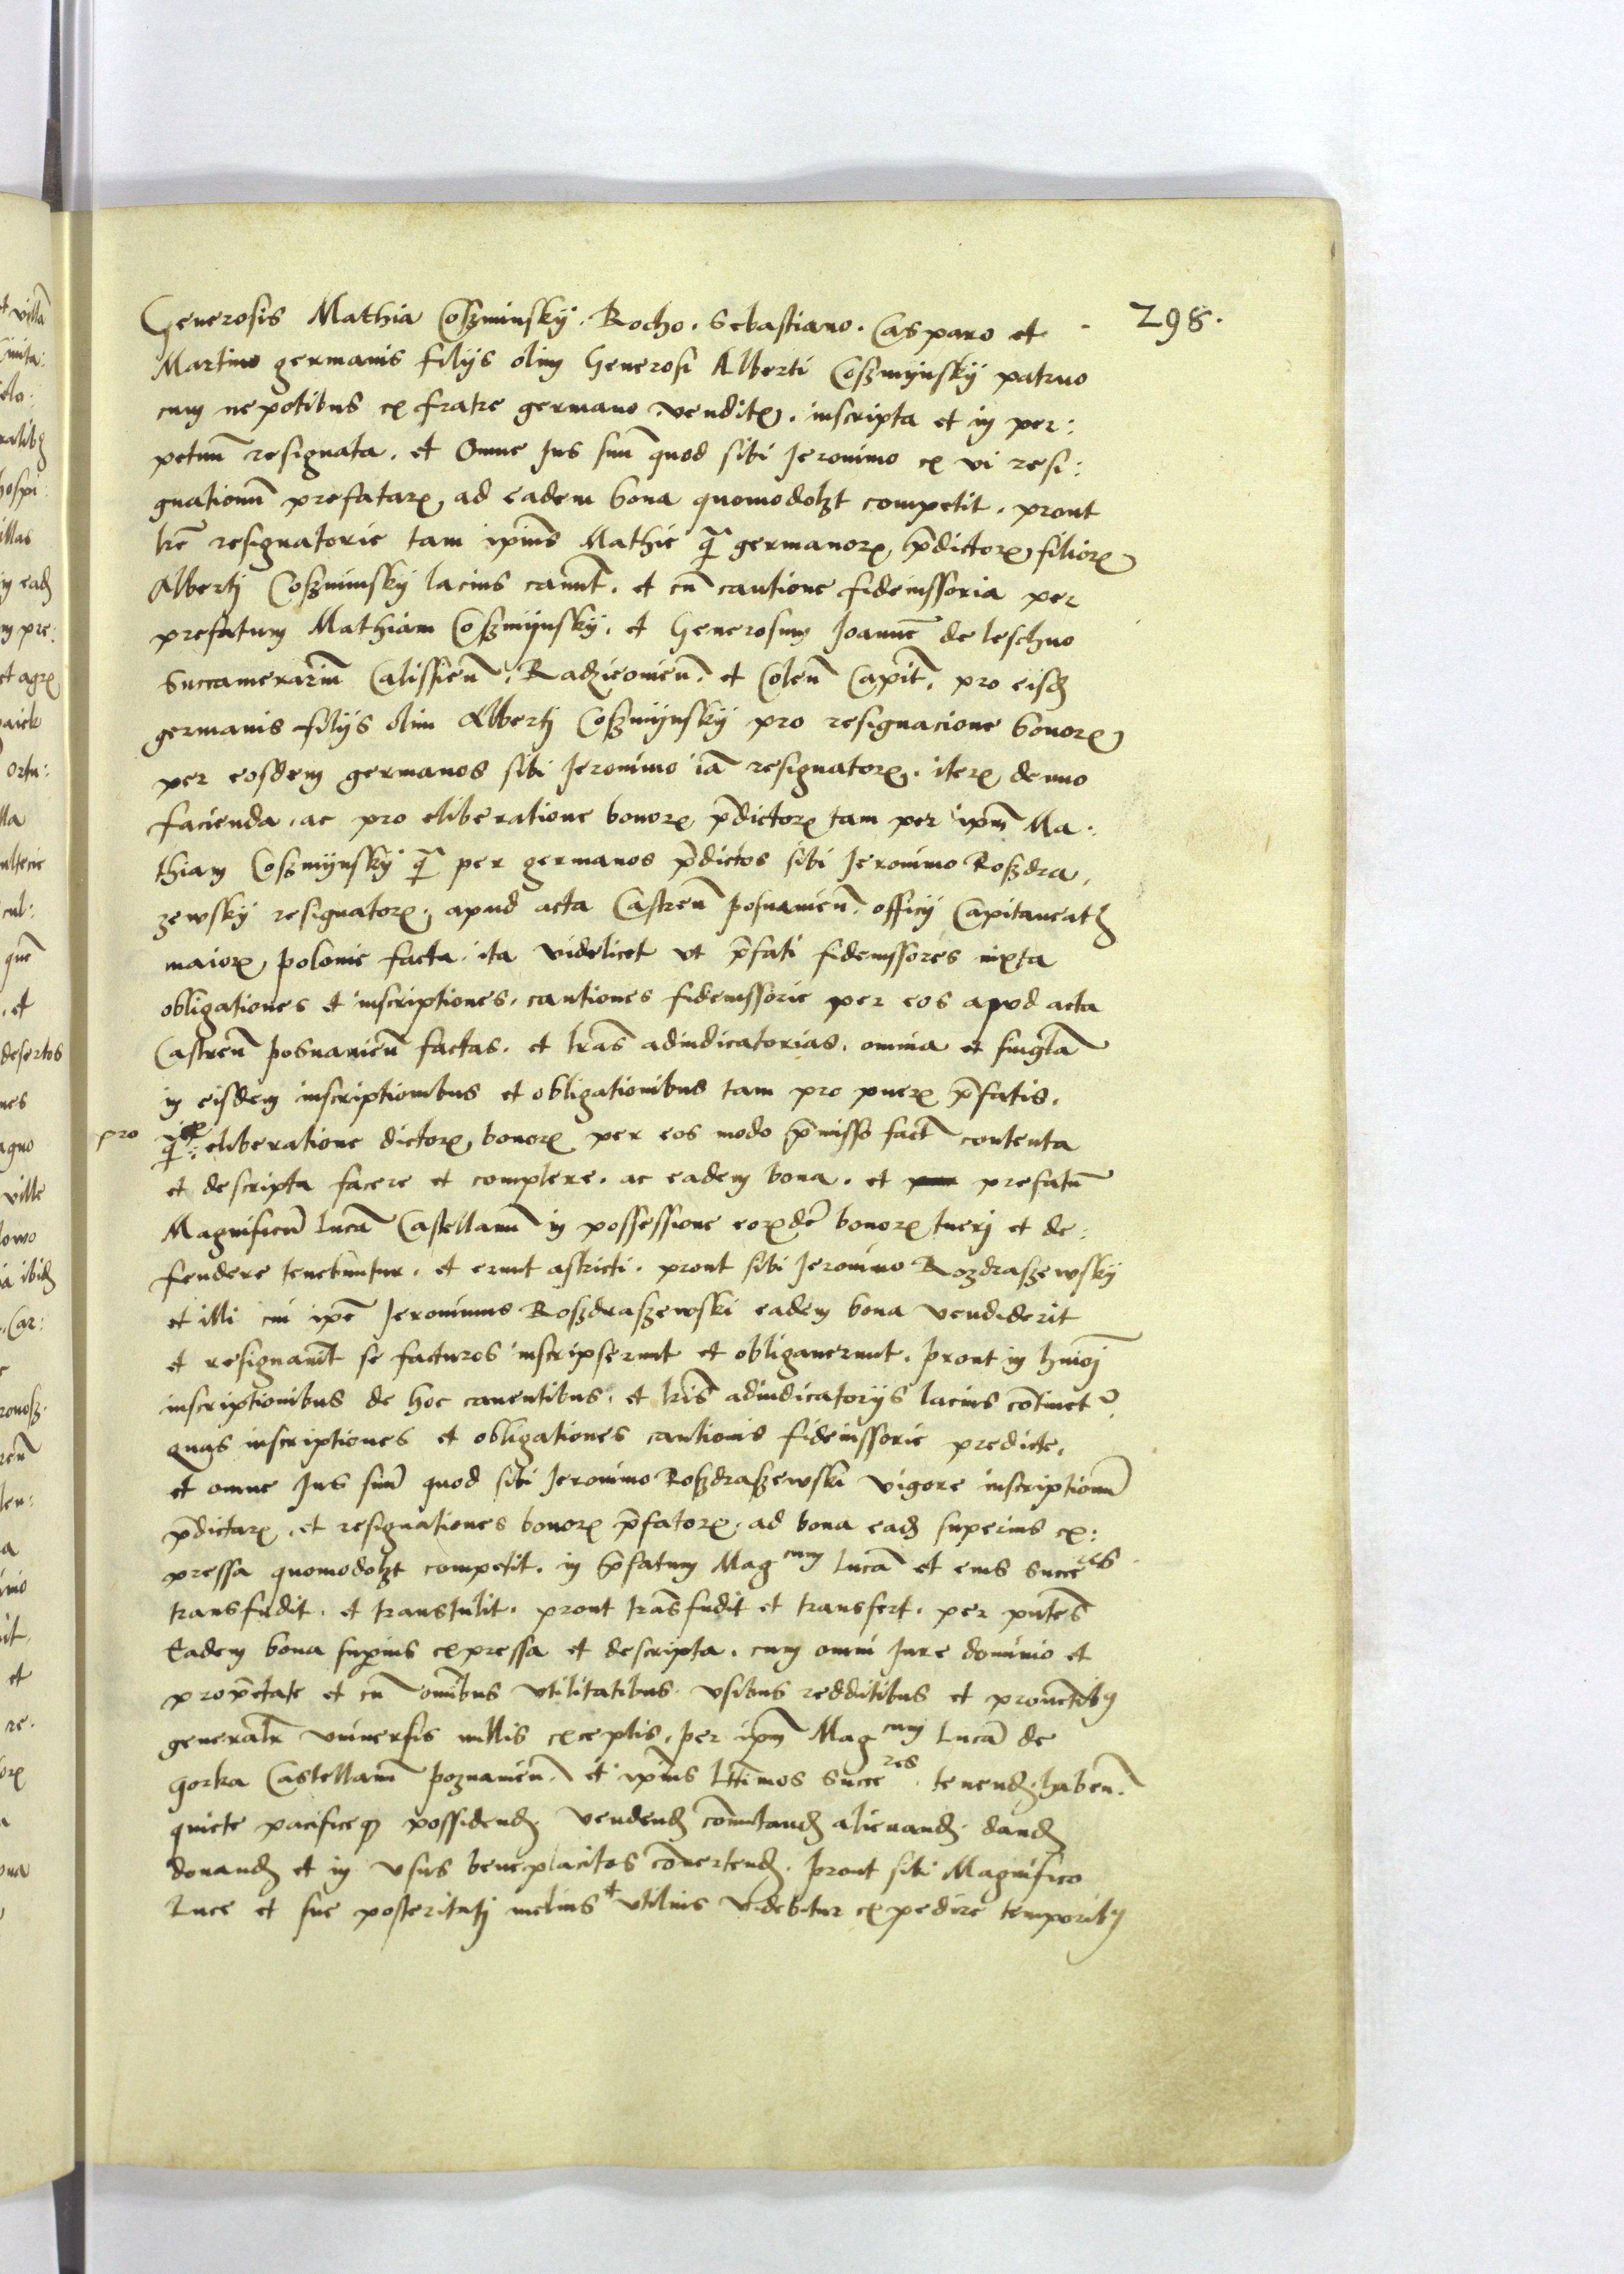 298.
Generosis Mathia Coszminsky. Rocho. Sebastiano. Casparo et
Martino germanis filijs olim Generosi Alberti Coszmijnskij patruo
cum nepotibus ex fratre germano venditꝫ. inscripta et in per:
petuũ resignata. et Omne Ius suũ quod sibi Jeronimo ex vi resi:
gnationũ prefatarꝫ, ad eadem bona quomodolʒt competit. prout
lrẽ resignatorie tam ipius Mathie q̃ germanorꝫ p̃dictorꝫ filiorꝫ
Albertj Coszminskij lacius canũt. et cũ cautione fideiussoria per
prefatum Mathiam Coszmijnskij. et Generosum Joannẽ de leschno
Succamerariũ Calissieñ. Radzieouieñ. et Coleñ Capit̃. pro eisdꝫ
germanis filijs olim Albertj Coszmijnskij pro resignacione bonorꝫ
per eosdem germanos sibi Jeronimo iã resignatorꝫ. iterꝫ denuo
facienda. ac pro eliberatione bonorꝫ p̃dictorꝫ tam per ipm̃ Ma:
thiam Coszmijnskij q̃ per germanos p̃dictos sibi Jeronimo Roszdra,
zewskij resignatorꝫ. apud acta Castreñ posnanieñ. officij Capitaneatꝫ
maiorꝫ polonie facta. ita videlicet vt p̃fati fideiussores iuxta
obligationes et inscriptiones. cautiones fideiussorie per eos apud acta
Castreñ posnanieñ factas. et lrãs adiudicatorias. omnia et singlã
in eisdem inscriptionibus et obligationibus tam pro puerꝫ p̃fatis.
pro q̃: eliberatione dictorꝫ bonorꝫ per eos modo p̃misso fact̃ contenta
et descripta facere et complere. ac eadem bona. et prefatũ
Magnificũ Lucã Castellanũ in possessione eorꝫdẽ bonorꝫ tuerj et de:
fendere tenebuntur. et erunt astricti. prout sibi Jeronimo Rozdraszewskij
et illi cui ipẽ Jeronimus Roszdraszewski eadem bona vendiderit
et resignauit se facturos inscripserunt et obligauerunt. prout in huiõj
inscriptionibus de hoc cauentibus. et lrĩs adiudicatorijs lacius cõtinet̃.
quas inscriptiones et obligationes cautionis fideiussorie predicte.
et omne Ius suũ quod sibi Jeronimo Roszdraszewski vigore inscriptionũ
p̃dictarꝫ. et resignationes bonorꝫ p̃fatorꝫ. ad bona eadꝫ superius ex:
pressa quomodolʒt competit. in p̃fatum Magcum Lucã et eius Succeres
transfudit. et transtulit. prout trãsfudit et transfert. per pñtes
Eadem bona supius expressa et descripta. cum omni Iure dominio et
prop̃etate et cũ omĩbus vtilitatibus. vsibus redditibus et prouẽtibꝫ
generalr̃ vniuersis nullis exceptis. per ipm̃ Magcum Lucã de
Gorka Castellanũ poznanieñ. et ipius lt̃timos Succeres. tenendꝫ. habeñ.
quiete pacificeqꝫ possidendꝫ. vendendꝫ cõmutandꝫ alienandꝫ. dandꝫ
donandꝫ et in vsus beneplacitos cõuertendꝫ. prout sibi Magnifico
Luce et sue posteritatj melius et vtilius videbitur expedire temporibꝫ